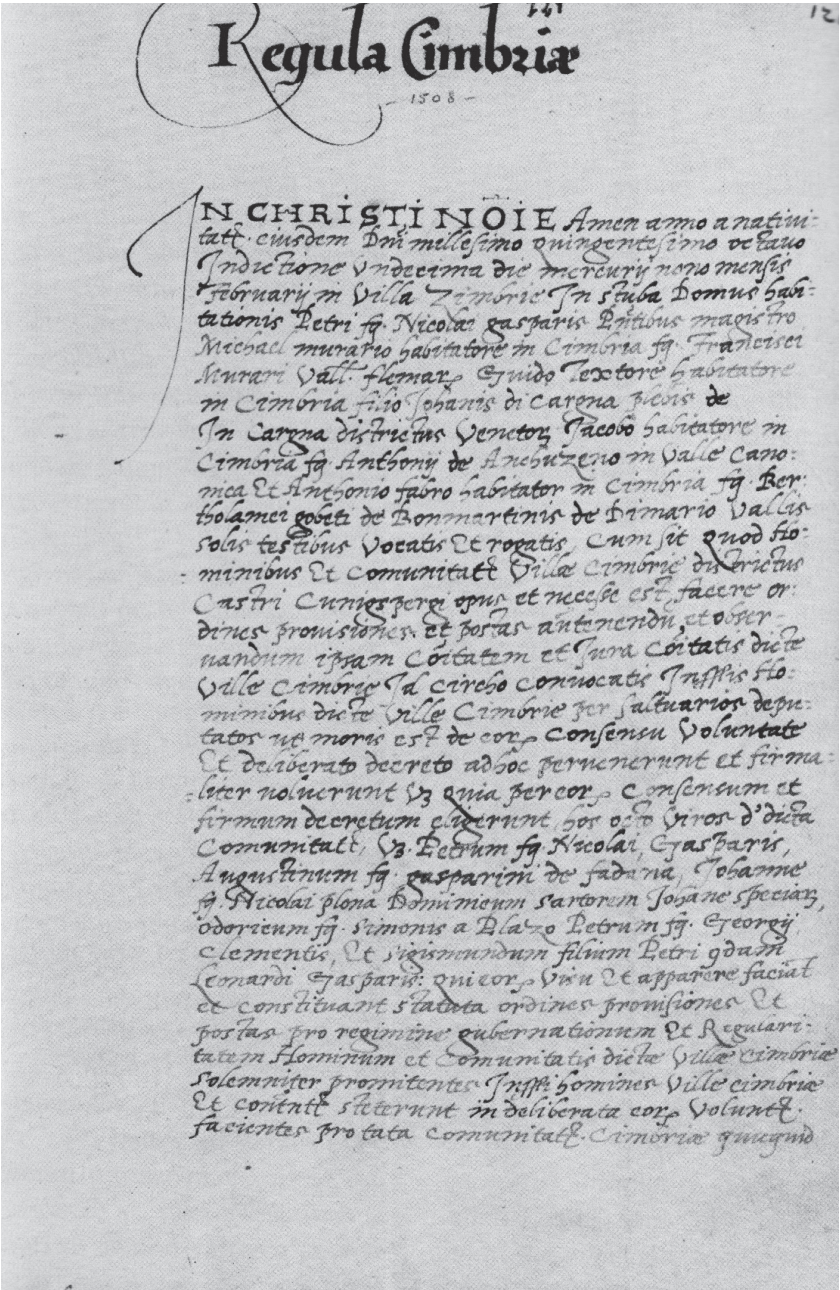 12
Regula Cimbriæ
- 1508 -
IN CHRISTI NOIE Amen anno a nativi:
tatt. eiusdem Dni millesimo quingentesimo octavo
Indictione Undecima die mercurij nono mensis
Februarij in Villa Zimbrie In stuba Domus habi:
tationis Petri fq. Nicolai gasparis Pñtibus magistro
Michael murario habitatore in Cimbria fq. Francisci
Murari Vall. flemar. Guido Textore habitatore
in Cimbria filio Johanis di Cargna plebis de
In Cargna districtus Venetor. Jacobo habitatore in
Cimbria fq. Anthonij de Anchuzeno in Valle Cano:
nica Et Anthonio fabro habitator in Cimbria fq. Ber:
tholamei gobeti de Bonmartinis de Dimario Vallis
Solis testibus Vocatis Et rogatis, Cum sit quod Ho:
minibus Et Comunitatt Villæ Cimbrie districtus
Castri Cunigspergi opus et necesse est facere or:
dines provisiones. et postas autenendũ et obser:
uandum ipsam Cõitatem et Jura Cõitatis dicte
Ville Cimbrie Id Circho Convocatis Insffis Ho:
minibus dicte Ville Cimbrie per Saltuarios depu:
tatos ut moris est de eor. Consensu Voluntate
Et deliberato decreto adhoc pervenerunt et firma:
liter voluerunt Vz quia per eor. Consensum et
firmum decretum eligerunt hos octo Viros d'dicta
Comunitatt, Vz. Petrum fq. Nicolai, Gasparis,
Augustinum fq. gasparini de fadana, Johanne
fq. Nicolai plona Dominicum Sartorem Johane speciar,
odoricum fq. Simonis a Plazo Petrum fq. Georgij
Clementis, Et Sigismundum filium Petri qdam
Leonardi Gasparis: qui eor. Visu Et apparere faciãt
et Constituant statuta ordines provisiones Et
postas pro regimine gubernationum Et Regulari:
tatem Hominum et Comunitatis dictæ Villæ Cimbriæ
Solemniter promitentes Insffi homines Ville cimbriæ
Et Contntt steterunt in deliberata eor. Voluntt.
facientes pro tata Comunitatt. Cimbriæ quicquid